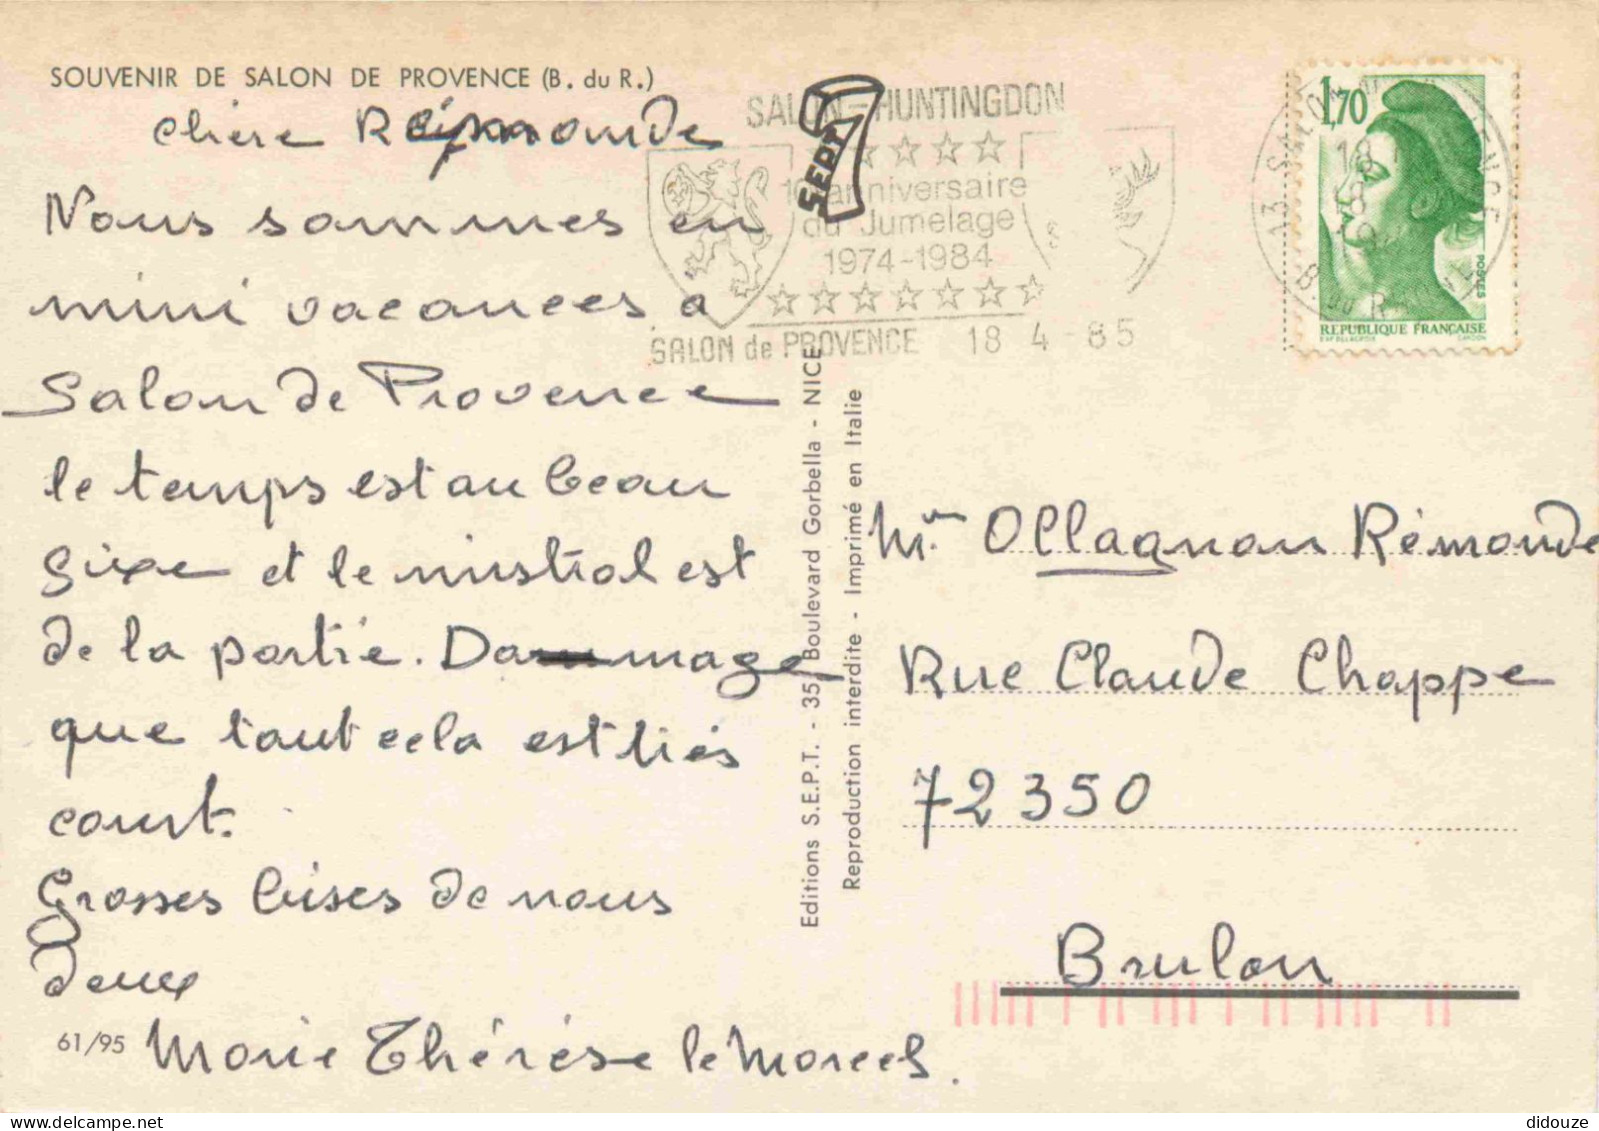 SOUVENIR DE SALON DE PROVENCE (B. du R.)
chère Rémonde
Nous sommes en
mini vacances a
Salon de Provence
le temps est au beau
fixe et le mistral est
de la partie. Dommage
que tout cela est très
court.
Grosses bises de nous
deux
61/95
Marie Thérèse le Marcel.
SALON-HUNTINGDON
10e anniversaire
du Jumelage
1974-1984
SALON de PROVENCE 18 4-85
SEPT
7
Editions S.E.P.T. - 35, Boulevard Gorbella - NICE
Reproduction interdite - Imprimé en Italie
1,70
POSTES
REPUBLIQUE FRANÇAISE
13 SALON DE PROVENCE
B. DU RHONE
Mme Ollagnon Rémonde
Rue Claude Chappe
72350
Brulon
didouze